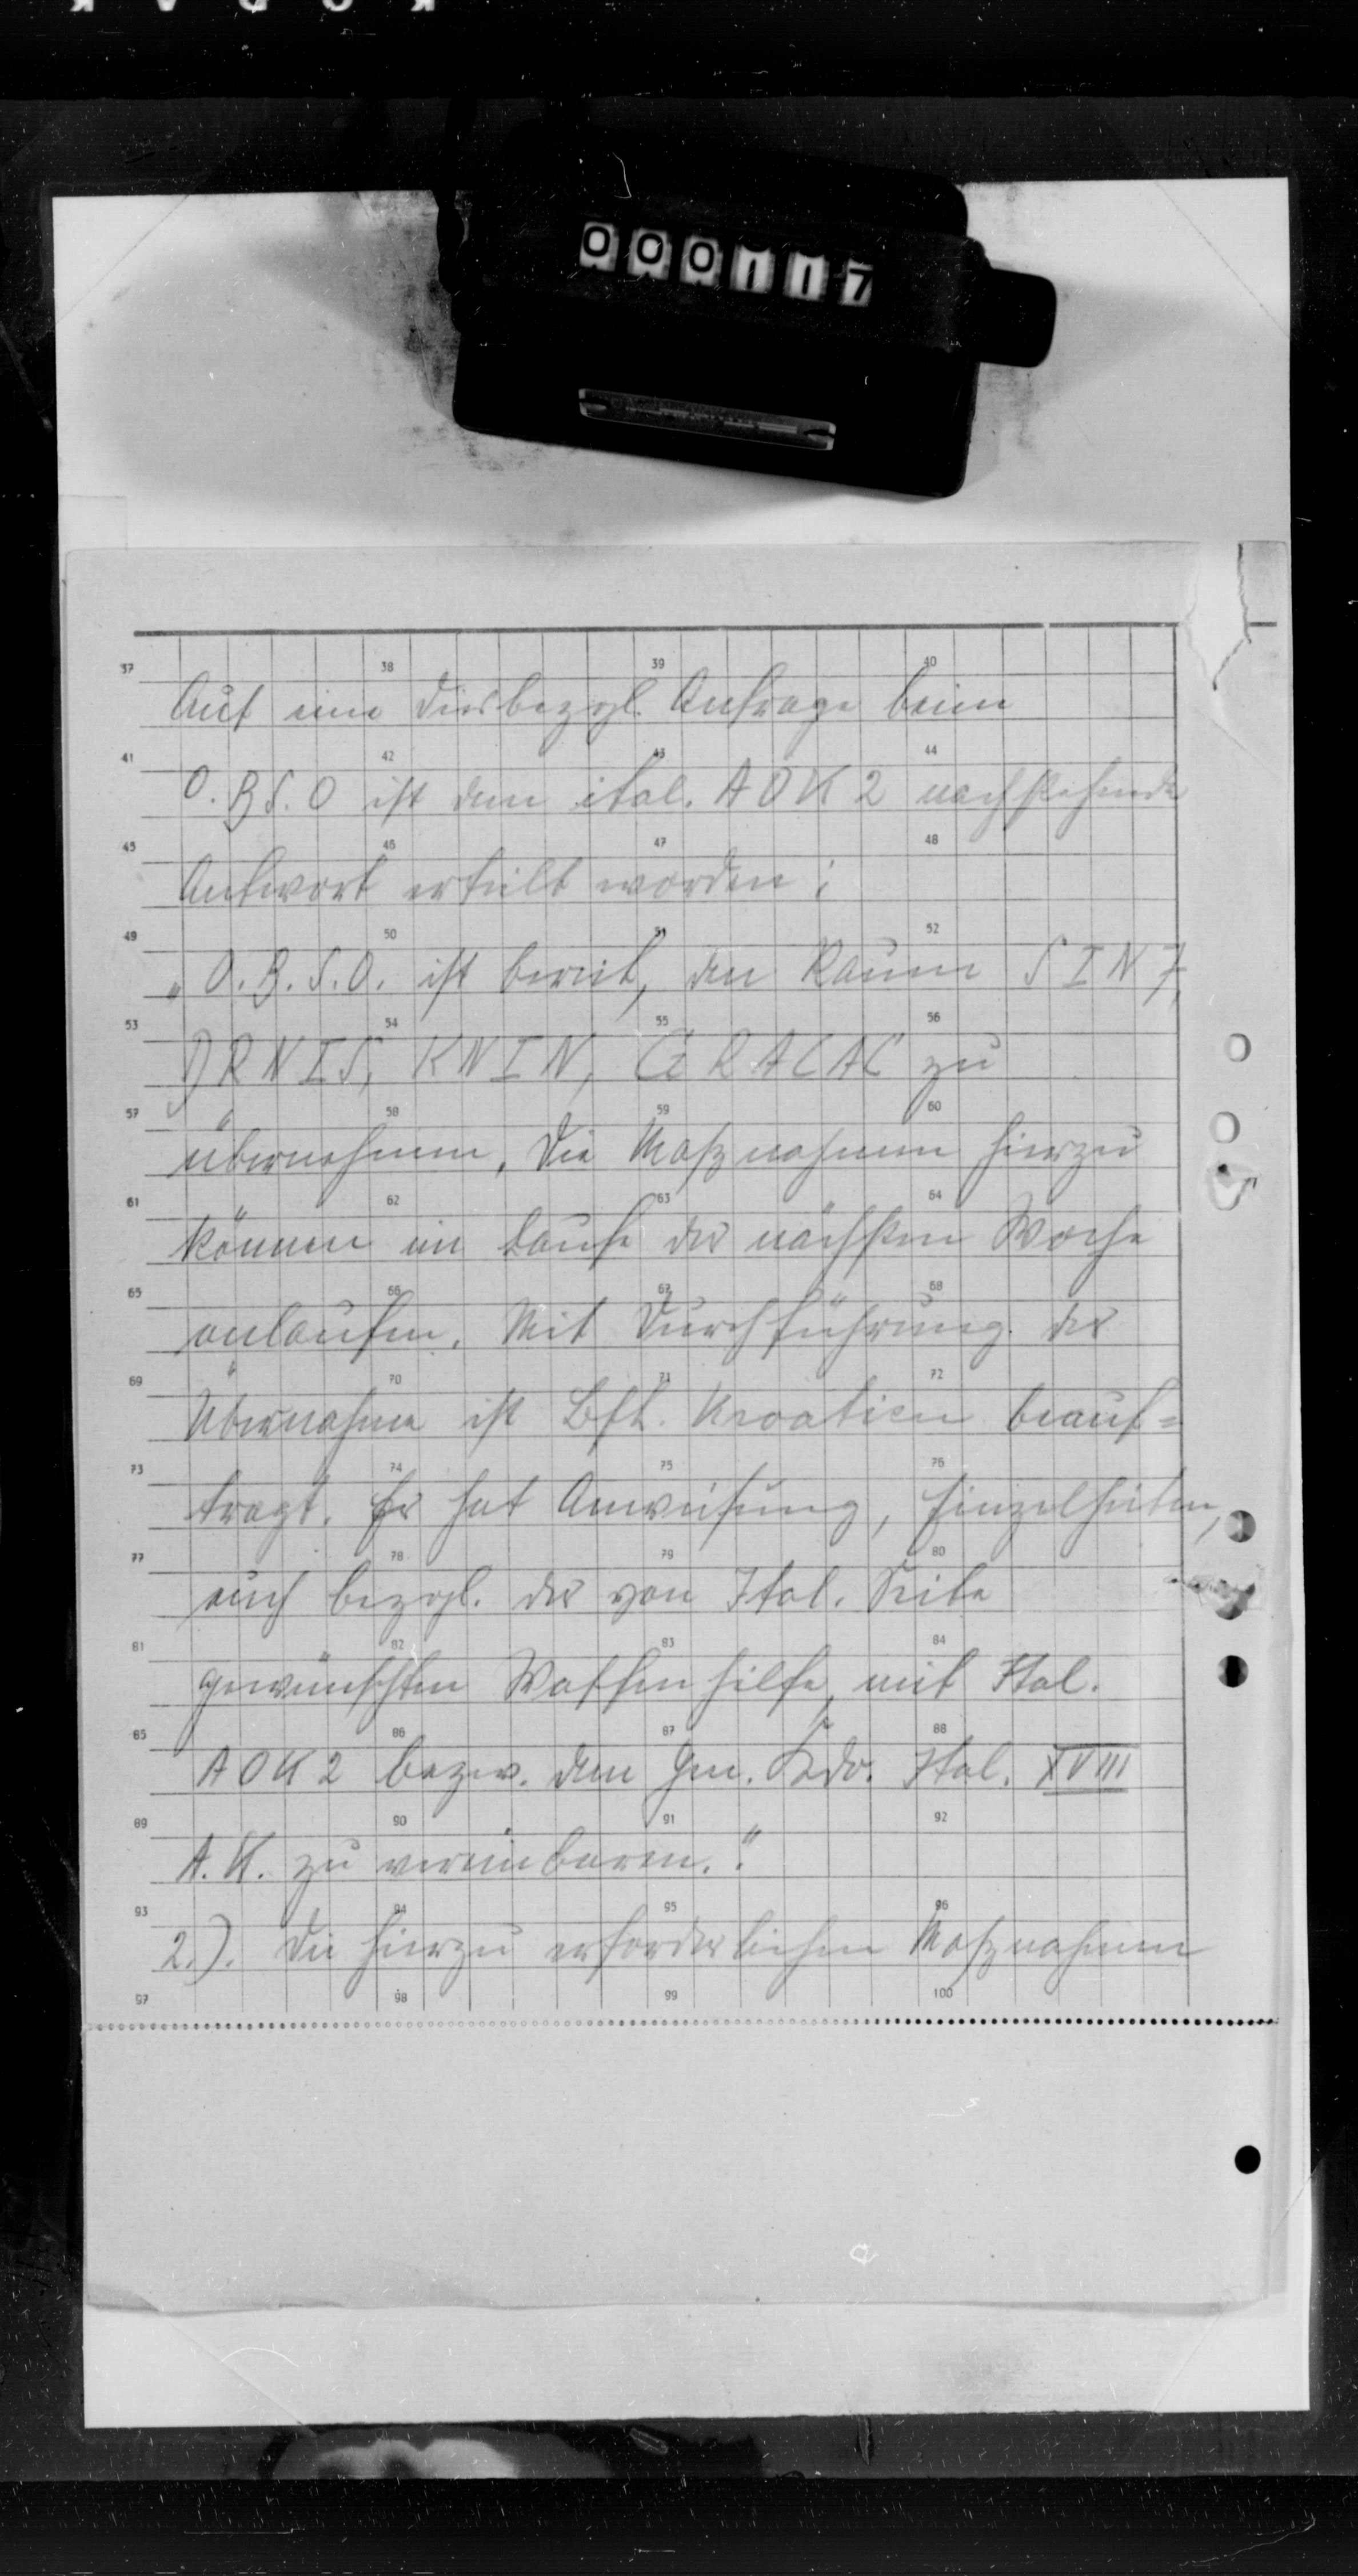 KODAK
000117
37 38 39 40
Auf eine diesbezgl. Anfrage beim
41 42 43 44
O.B.S.O ist dem ital. AOK 2 nachstehende
45 46 47 48
Antwort erteilt worden:
49 50 51 52
„O.B.S.O. ist bereit, den Raum SINJ,
53 54 55 56
DRNIS, KNIN, GRACAC zu
57 58 59 60
übernehmen. Die Maßnahmen hierzu
61 62 63 64
können im Laufe der nächsten Woche
65 66 67 68
anlaufen. Mit Durchführung der
69 70 71 72
Übernahme ist Bfh. Kroatien beauf=
73 74 75 76
tragt. Er hat Anweisung, Einzelheiten,
77 78 79 80
auch bezgl. der von Ital. Seite
81 82 83 84
gewünschten Waffenhilfe, mit Ital.
85 86 87 88
AOK 2 bezw. dem Gen. Kdo. Ital. XVIII
89 90 91 92
A.K. zu vereinbaren."
93 94 95 96
2.). Die hierzu erforderlichen Maßnahmen
97 98 99 100